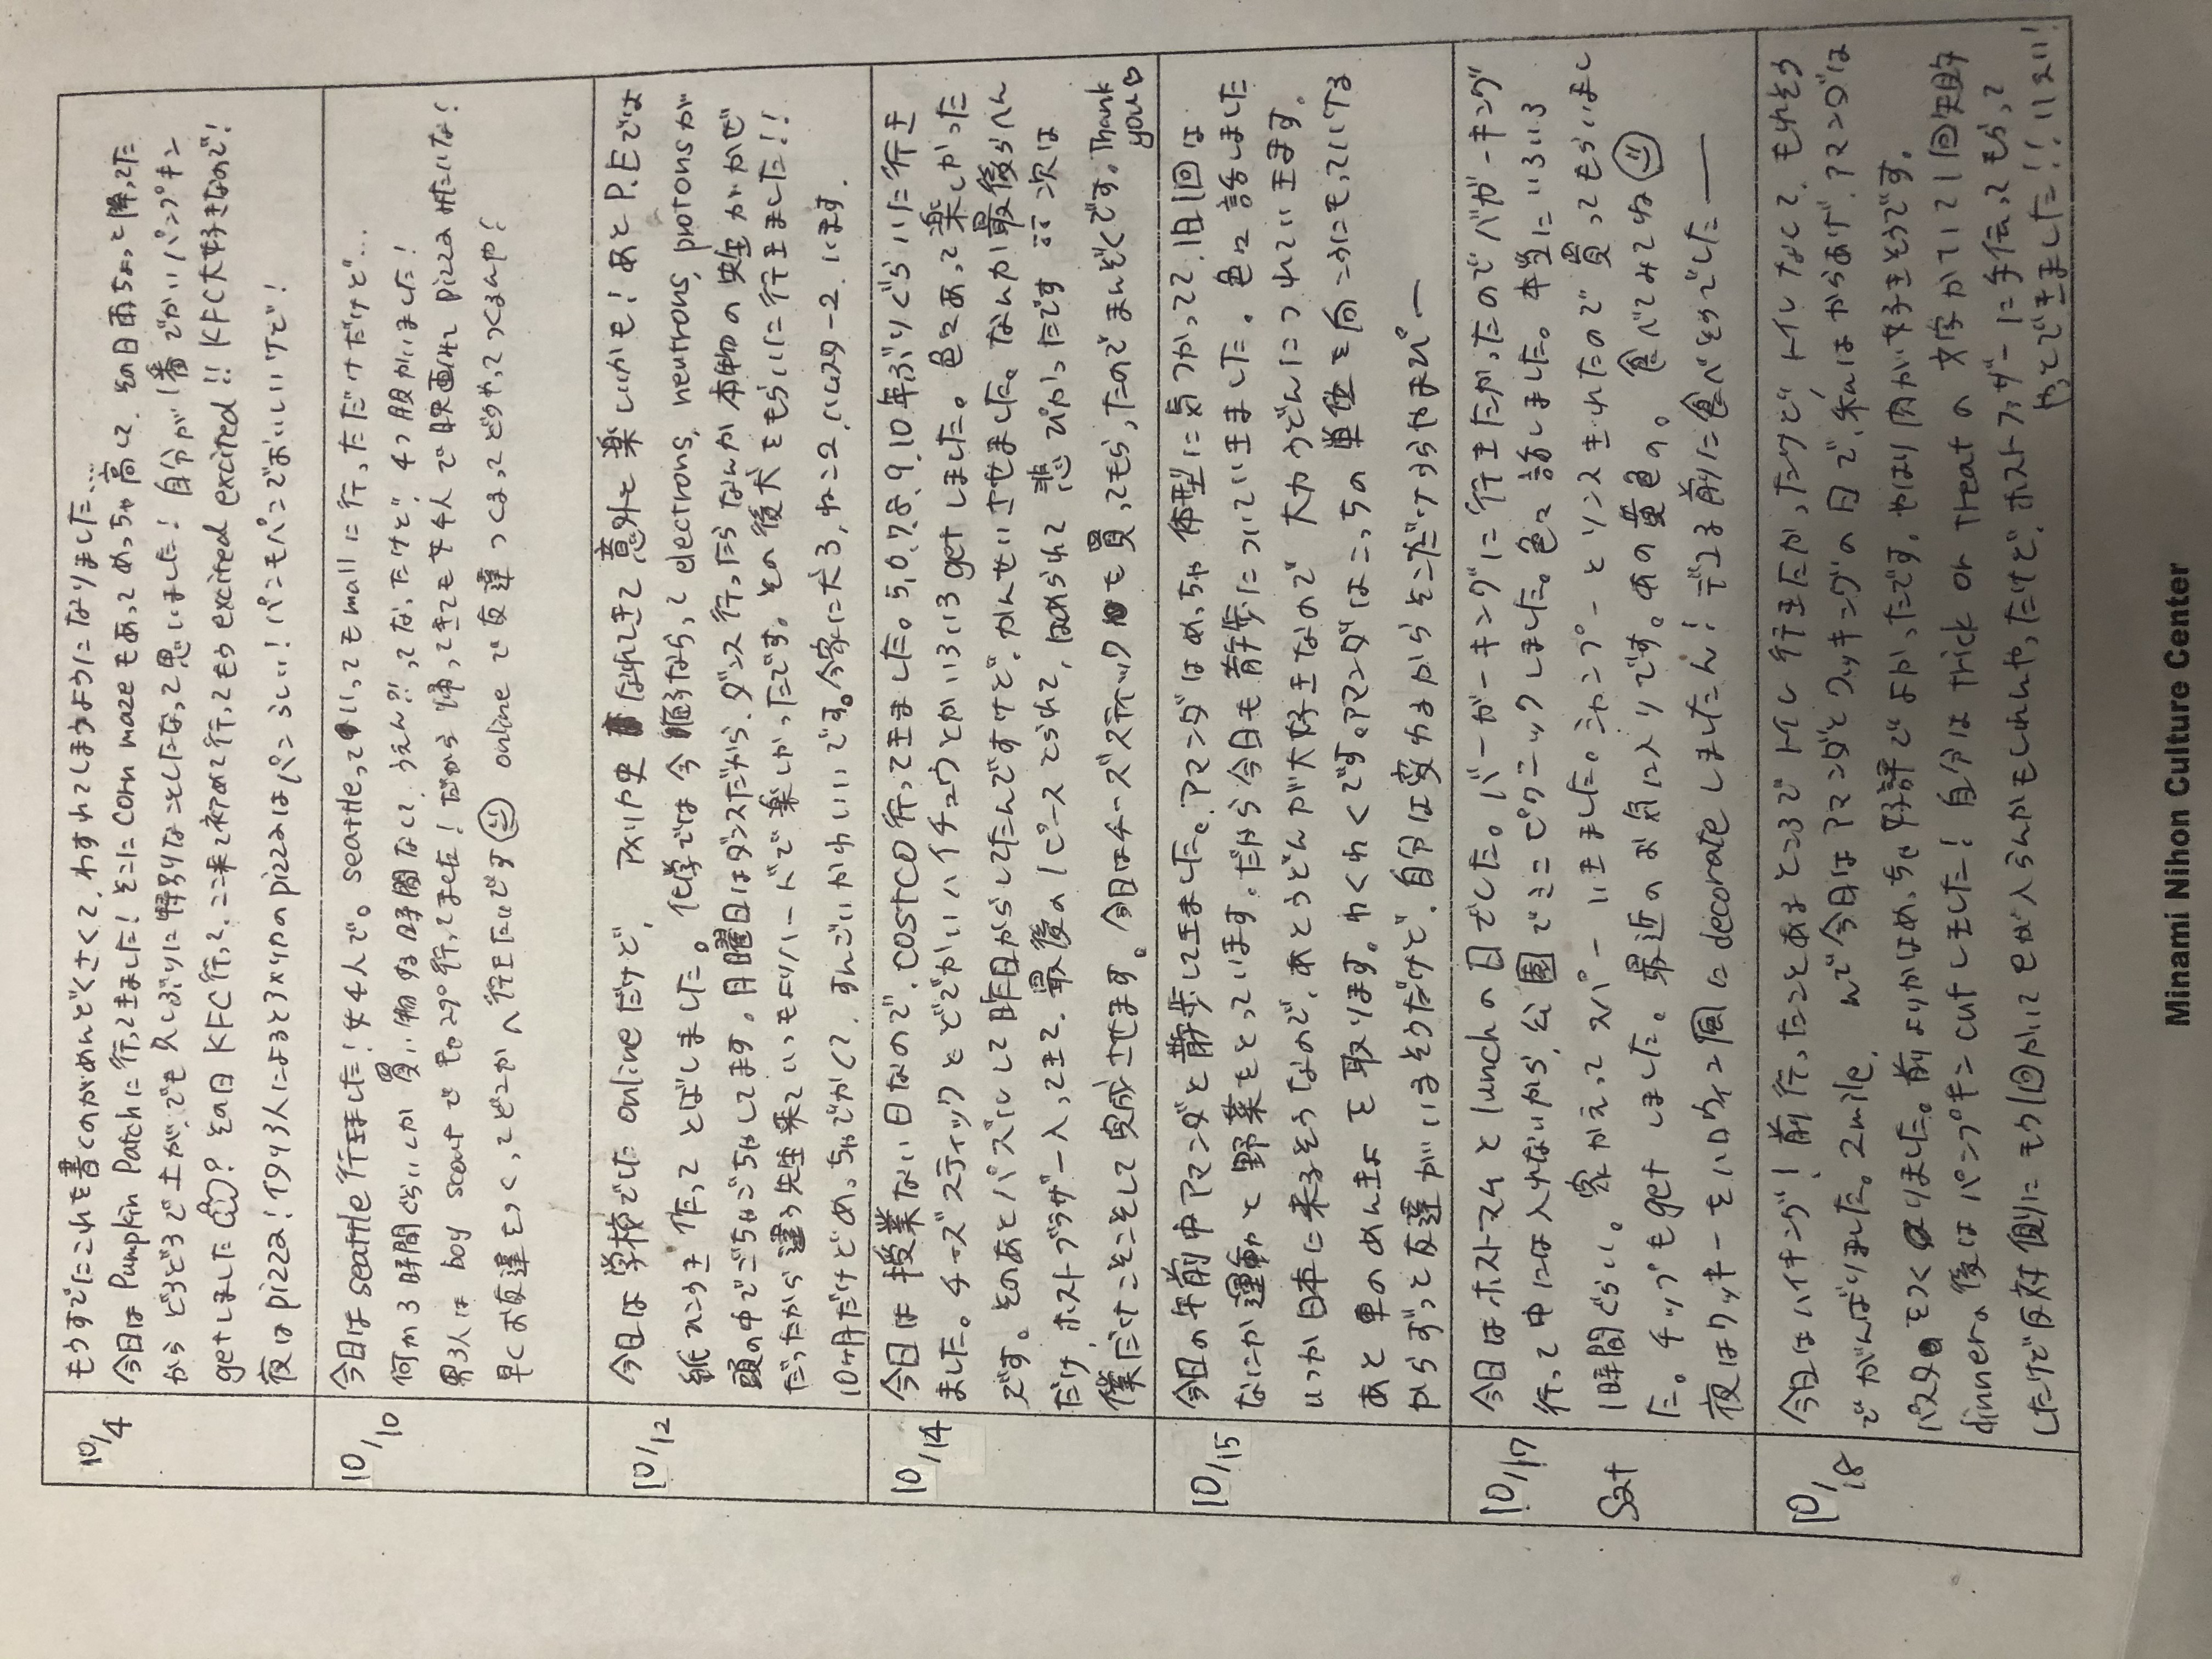 10/4
もうすでにこれを書くのがめんどくさくて、わすれてしまうようになりました…
今日は Pumpkin Patchに行ってきました！そこに corn maze もあってめっちゃ高して、その日雨ちょっと降ってた
から どろどろで土が、でも 久しぶりに特別なことしたなって思いました！自分が1番でかいパンプキン
getしました ? その日 KFC行って、ここ来て初めて行ってもう excited excited!! KFC大好きなので！
夜は pizza! イタリア人によるとアメリカの pizzaはパンらしい！パンもパンでおいしいけど！
10/10
今日は seattle 行きました！女4人で。seattleって いっても mall に行っただけだけど…
何か3時間ぐらいしか買い物する時間なして、うえん?!ってなったけど、4つ服かいました！
男3人は boy scoutで キャンプ行ってました！だから帰ってきても女4人で映画みて pizzaみたいな！
早くお友達をつくってどこかへ行きたいです online で友達つくるってどうやってつくるんや！
10/12
今日は学校でした onlineだけど、アメリカ史 なれてきて意外と楽しいかも！あと P.Eでは
紙ひこうき 作って とばしました。化学では今 ならって electrons, neutrons, protonsが
頭の中でごちゃごちゃしてます。月曜日はダンスだから、ダンス行ったらなんか本物の先生がかぜ
だったから違う先生来ていつもよりハードで楽しかったです。その後犬をもらいに行きました!!
10ヶ月だけどめっちゃでかくて、すんごいかわいいです。今家に犬3, ねこ2, ハムスター2、います.
10/14
今日は授業ない日なので、COSTCO行ってきました。5,0,7,8,9,10年ぶりぐらいに行き
ました。チーズスティックとどでかいハイチュウとかいろいろ getしました。色々あって楽しかった
です。そのあとパズルして昨日からしてたんですけど、かんせいさせました。なんか最後らへん
だけ、ホストブラザー入ってきて、最後の1ピースとられて、はめられて悲ぴかったです 次は
僕だけこそこそして完成させます。今日はチーズスティック も買ってもらったのでまんぞくです。Thank
you♡
10/15
今日の午前中アマンダと散歩してきました。アマンダはめっちゃ体型に気つかってて、1日1回は
なにか運動と野菜をとっています。だから今日も散歩についていきました。色々話しました
いつか日本に来るそうなので、あとうどんが大好きなので 大力うどんにつれていきます。
あと車のめんきょを取ります。わくわくです。アマンダはこっちの単位を向こうにもっていける
からずっと友達がいるそうだけど、自分は変わるからそこだけうらやまぴー
10/17
Sat
今日はホストマムとlunchの日でした。バーガーキングに行きたかったのでバガーキング
行って中には入れないから、公園でミニピクニックしました。色々話しました。本当にいろいろ
1時間ぐらい。家かえってスパーいきました。シャンプーとリンスきれたので買ってもらいまし
た。チップもgetしました。最近のお気に入りです。あの黄色の。食べてみてね
夜はクッキーをハロウィン風に decorate しましたん！デコる前に食べそうでした――
10/18
今日はハイキング！前行ったことあるところでトイレ行きたかったけど、トイレなくて、もれそう
でがんばりました。2mile. んで今日はアマンダとクッキングの日で、私はからあげ、アマンダは
パスタ をつくりました。前よりかはめっちゃ好評でよかったです。やはり肉が好きそうです。
dinnerの後はパンプキンcutしました！自分は trick or treat の文字かいて1回失敗
したけど反対側にもう1回かいてeが入らんかもしれんやったけど、ホストファザーに手伝ってもらって
やっとできました!! いえい!
Minami Nihon Culture Center